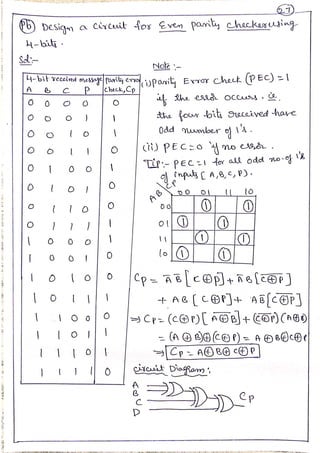 2.7
Pb) Design a circuit for Even parity checker using
4-bits.
Sol:-
4-bit received message | parity error check, Cp
A B C P
0 0 0 0 0
0 0 0 1 1
0 0 1 0 1
0 0 1 1 0
0 1 0 0 1
0 1 0 1 0
0 1 1 0 0
0 1 1 1 1
1 0 0 0 1
1 0 0 1 0
1 0 1 0 0
1 0 1 1 1
1 1 0 0 0
1 1 0 1 1
1 1 1 0 1
1 1 1 1 0
Note :-
(i) parity Error Check (PEC) = 1
if the error occurs. ie.
the four bits received have
Odd number of 1's.
(ii) PEC = 0 if no error.
Tip:- PEC=1 for all odd no. of 1's
of inputs [A, B, C, P).
AB CP 00 01 11 10
00 1 1
01 1 1
11 1 1
10 1 1
Cp = A̅ B̅ [C⊕P] + A̅ B [C̅⊕̅P̅]
+ AB [C⊕P] + AB̅ [C̅⊕̅P̅]
⇒ Cp = (C⊕P) [A̅⊕̅B̅] + (C̅⊕̅P̅) (A⊕B)
= (A⊕B)⊕(C⊕P) = A⊕B⊕C⊕P
⇒ Cp = A⊕B⊕C⊕P
Circuit Diagram:
A
B
C
D
Cp